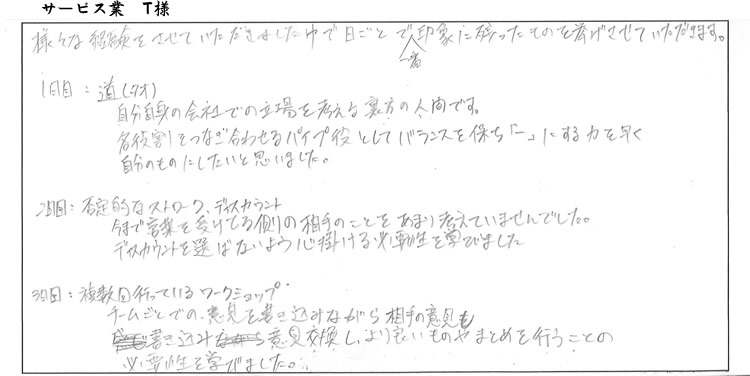 サービス業 T様
様々な経験をさせていただきました中で日ごとで一番印象に残ったものを挙げさせていただきます。
1日目：道（タオ）
自分自身の会社での立場を考えると裏方の人間です。
各役割をつなぎ合わせるパイプ役としてバランスを保ち「一」にする力を早く
自分のものにしたいと思いました。
2日目：否定的なストローク、ディスカウント
今まで言葉を受けてる側の相手のことをあまり考えていませんでした。
ディスカウントを選ばないよう心掛ける必要性を学びました
3日目：複数回行っているワークショップ
チームごとでの、意見を書き込みながら相手の意見も
書き込み意見交換し、より良いものやまとめを行うことの
必要性を学びました。